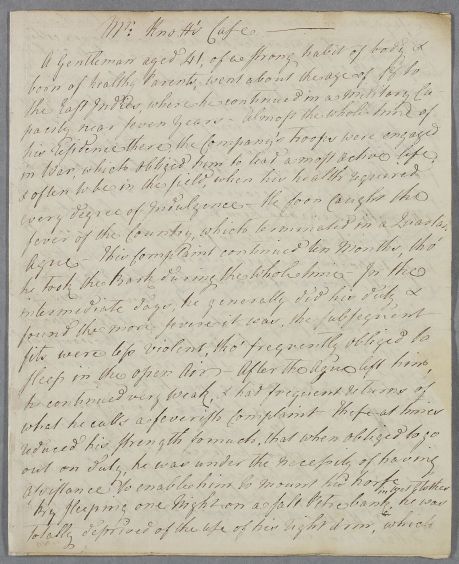 Mr: Knott's Case
A Gentleman aged 41, of a strong habit of body &
born of healthy Parents, went about the age of to
the East Indies, where he continued in a Military Ca-
pacity near seven Years - almost the whole time of
his residence there the Company's troops were engaged
in War, which obliged him to lead a most active life,
& often to be in the field, when his health required
every degree of Indulgence - he soon caught the
fever of the Country, which terminated in a Quartan
Ague - this Complaint continued ten Months, tho'
he took the Bark during the whole time - In the
intermediate days, he generally did his duty, &
found the more severe it was, the subsequent
fits were less violent, tho' frequently obliged to
sleep in the open Air - After the Ague left him,
he continued very weak, & had frequent returns of
what he calls a feverish Complaint - these at times
reduced his strength so much, that when obliged to go
out on duty, he was under the necessity of having
assistance to enable him to mount his horse
By sleeping one Night on a Salt Petre bank, in wet Clothes he was
totally deprived of the use of his right Arm, which